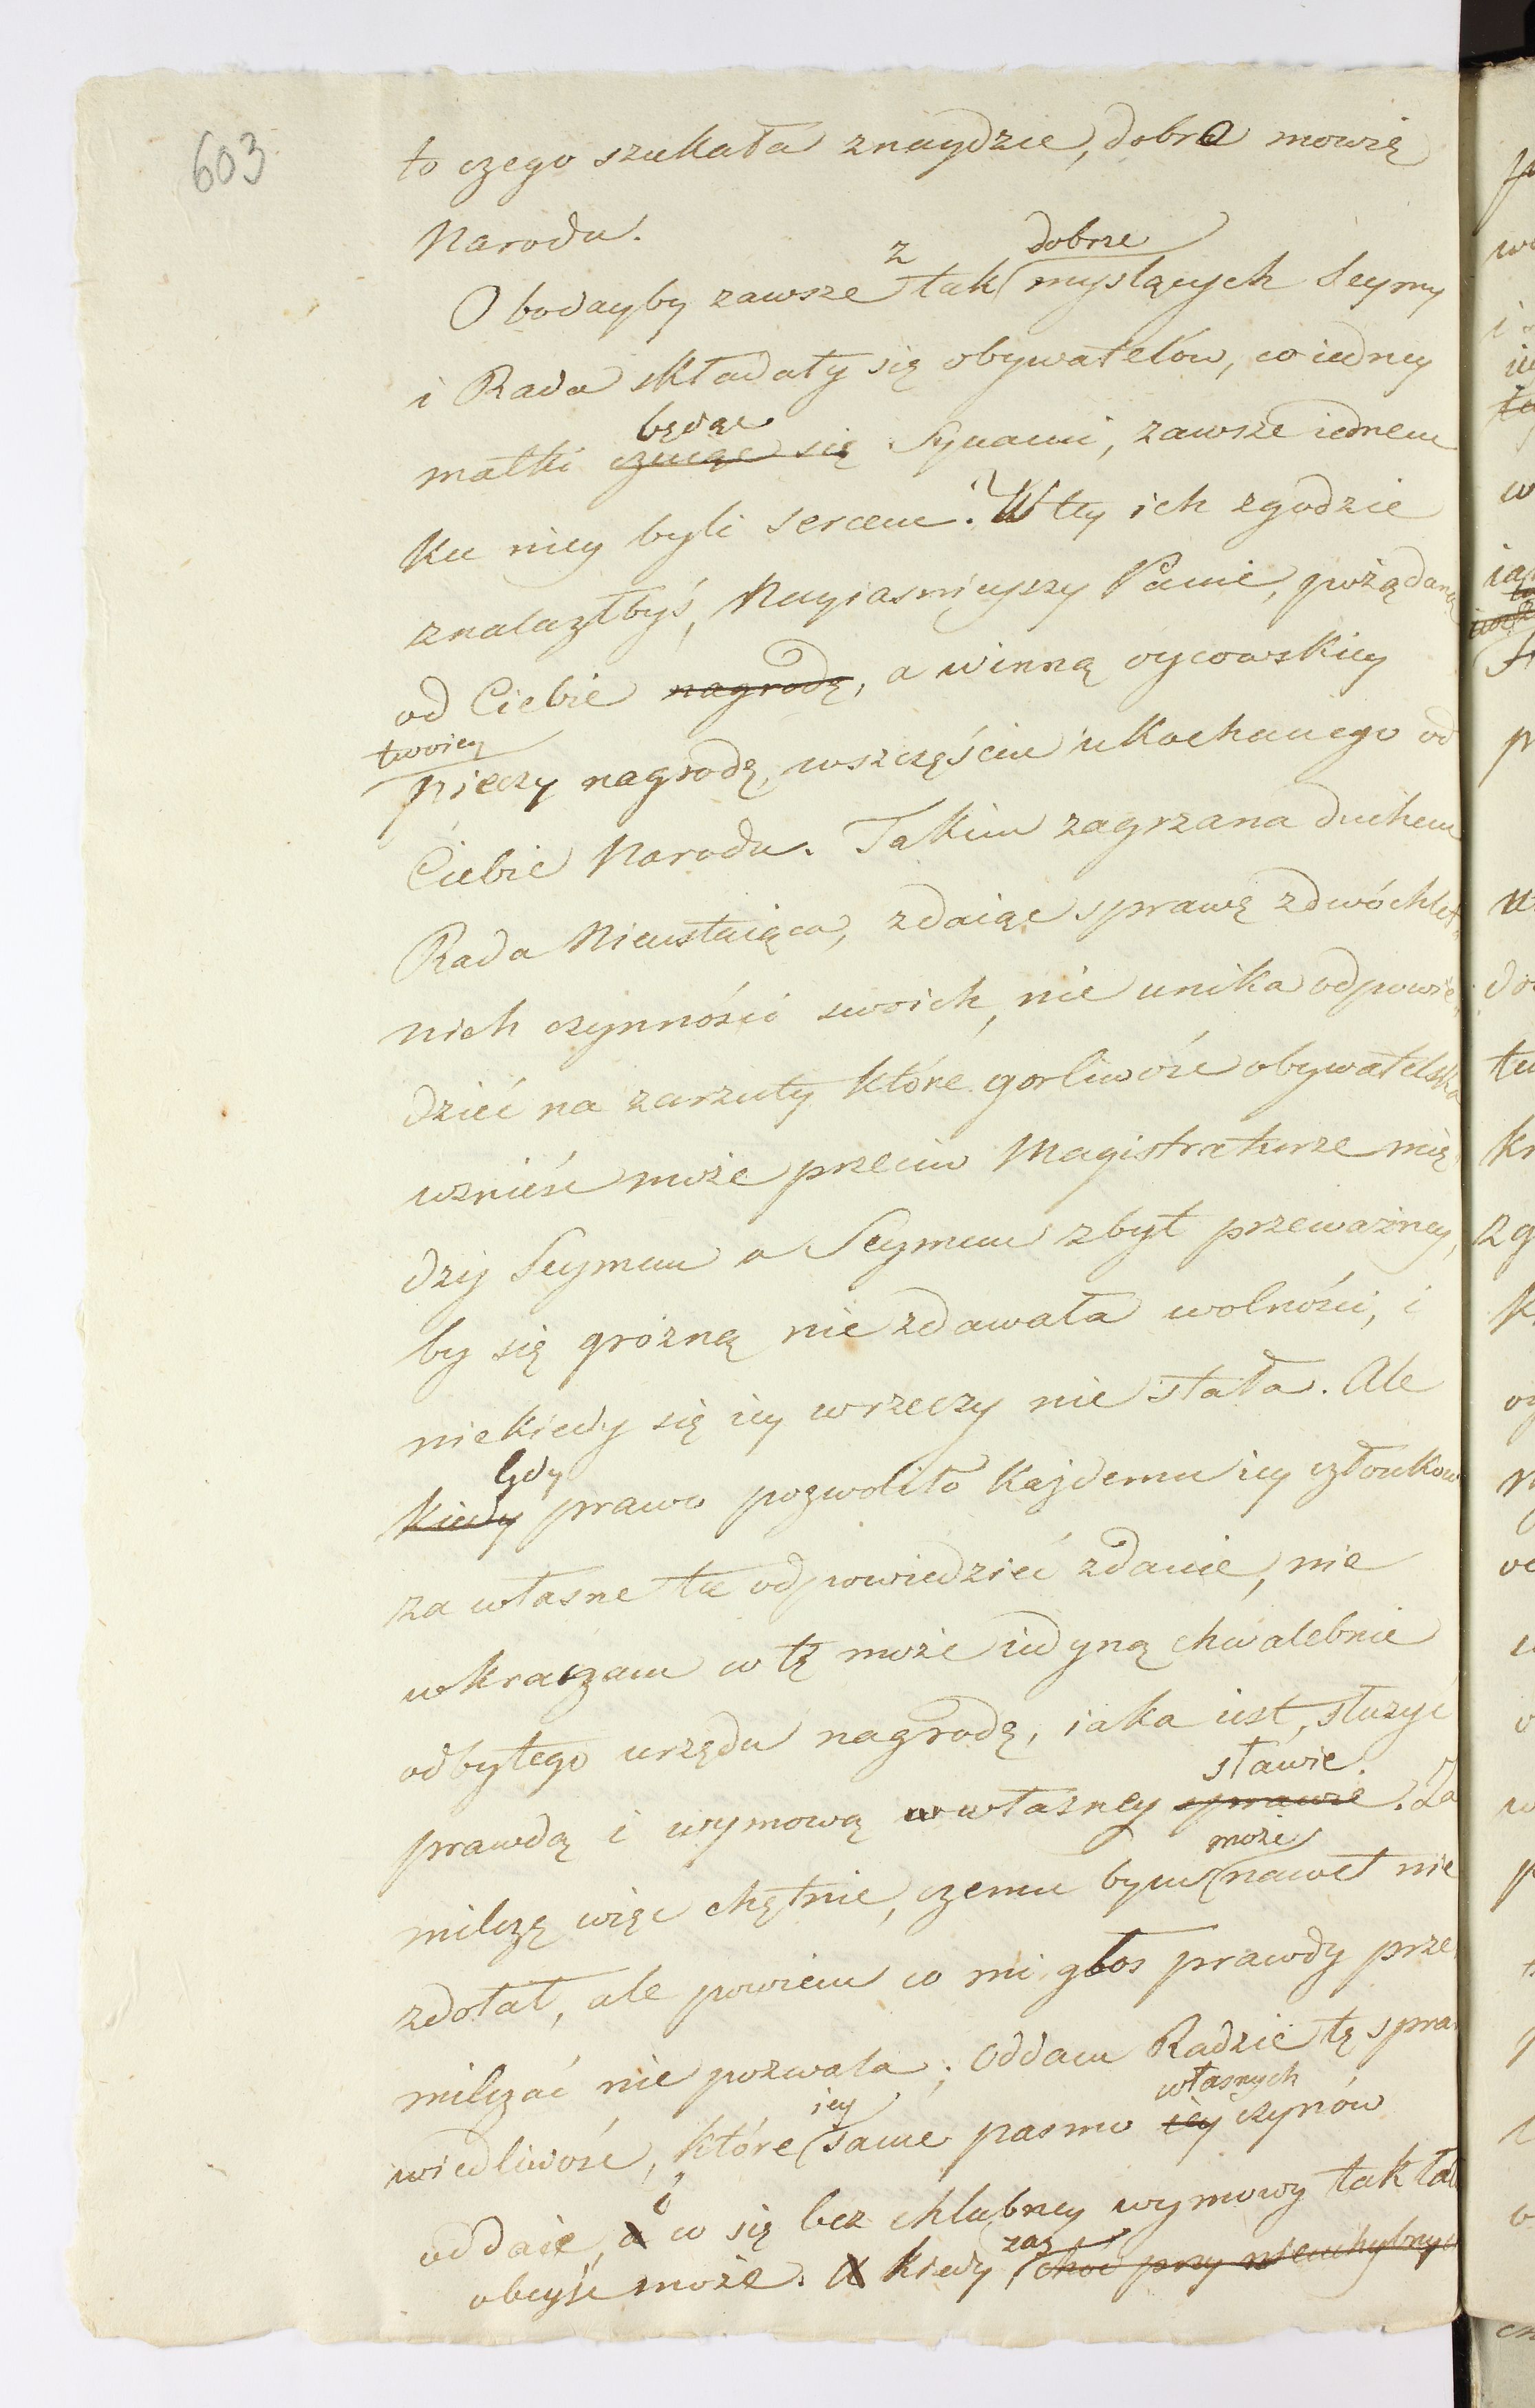 603
to czego szukała znaydzie, dobro mowię
Narodu.
z dobrze
O bodayby zawsze tak myslących Seymy
i Rada składały się obywatelów, co iedney
będąc
matki czuiąc się Synami, zawsze iednem
ku niey byli sercem. W tey ich zgodzie
znalazłbyś, Nayiasnieyszy Panie, pożądaną
od Ciebie nagrodę, a winną oycowskiey
twoiey
pieczy nagrodę, w szczęściu ukochanego od
Ciebie Narodu. Takim zagrzana duchem
Rada Nieustaiąca, zdaiąc sprawę z dwóchlet
nich czynności swoich, nie unika odpowie
dzieć na zarzuty które gorliwość obywatelska
wznieść może przeciw Magistraturze mię
dzy Seymem a Seymem zbyt przeważney,
by się groźną nie zdawała wolności, i
niekiedy się iey w rzeczy nie stała. Ale
Gdy
kiedy prawo pozwoliło każdemu iey członkow
za własne tu odpowiedzieć zdanie, nie
wkraczam w tę może iedyną chwalebnie
odbytego urzędu nagrodę, iaka iest, służyć
sławie.
prawdą i wymową własney sprawie. Za
może
milczę więc chętnie, czemu bym nawet nie
zdołał, ale powiem co mi głos prawdy prze
milczać nie pozwala; Oddam Radzie tę spra
iey własnych
wiedliwość, które same pasmo iey czynów
i
oddaie, a co się bez chlubney wymowy tak
zaś
obeyść może. A kiedy choć przy niechybnych